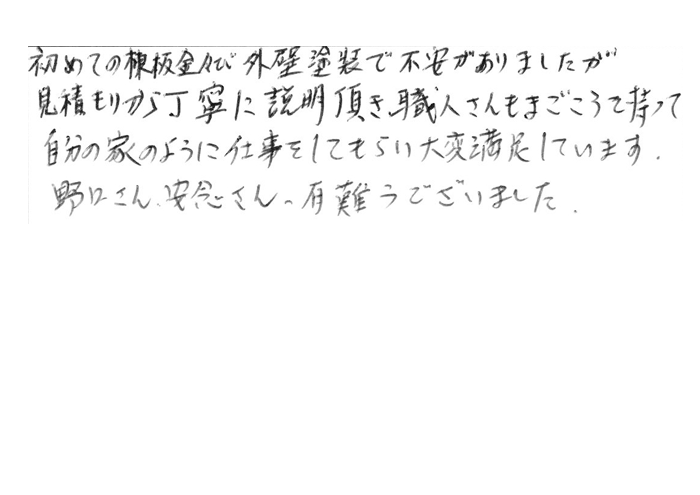 初めての棟板金及び外壁塗装で不安がありましたが
見積もりから丁寧に説明頂き、職人さんもまごころを持って
自分の家のように仕事をしてもらい大変満足しています.
野口さん、安念さん、有難うございました.